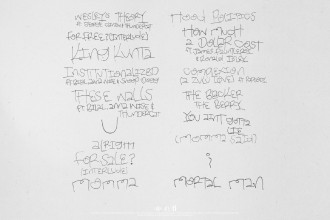 Wesley's Theory
ft George Clinton & Thundercat
For Free? (Interlude)
King Kunta
Institutionalized
ft Bilal, Anna Wise & Snoop Dogg
These Walls
ft Bilal, Anna Wise &
Thundercat
U
Alright
For Sale?
(Interlude)
Momma
Hood Politics
How Much
A Dollar Cost
ft James Fauntleroy
& Ronald Isley
Complexion
(A Zulu Love) ft Rapsody
The Blacker
The Berry
You Ain't Gotta
Lie
(Momma Said)
i
Mortal Man